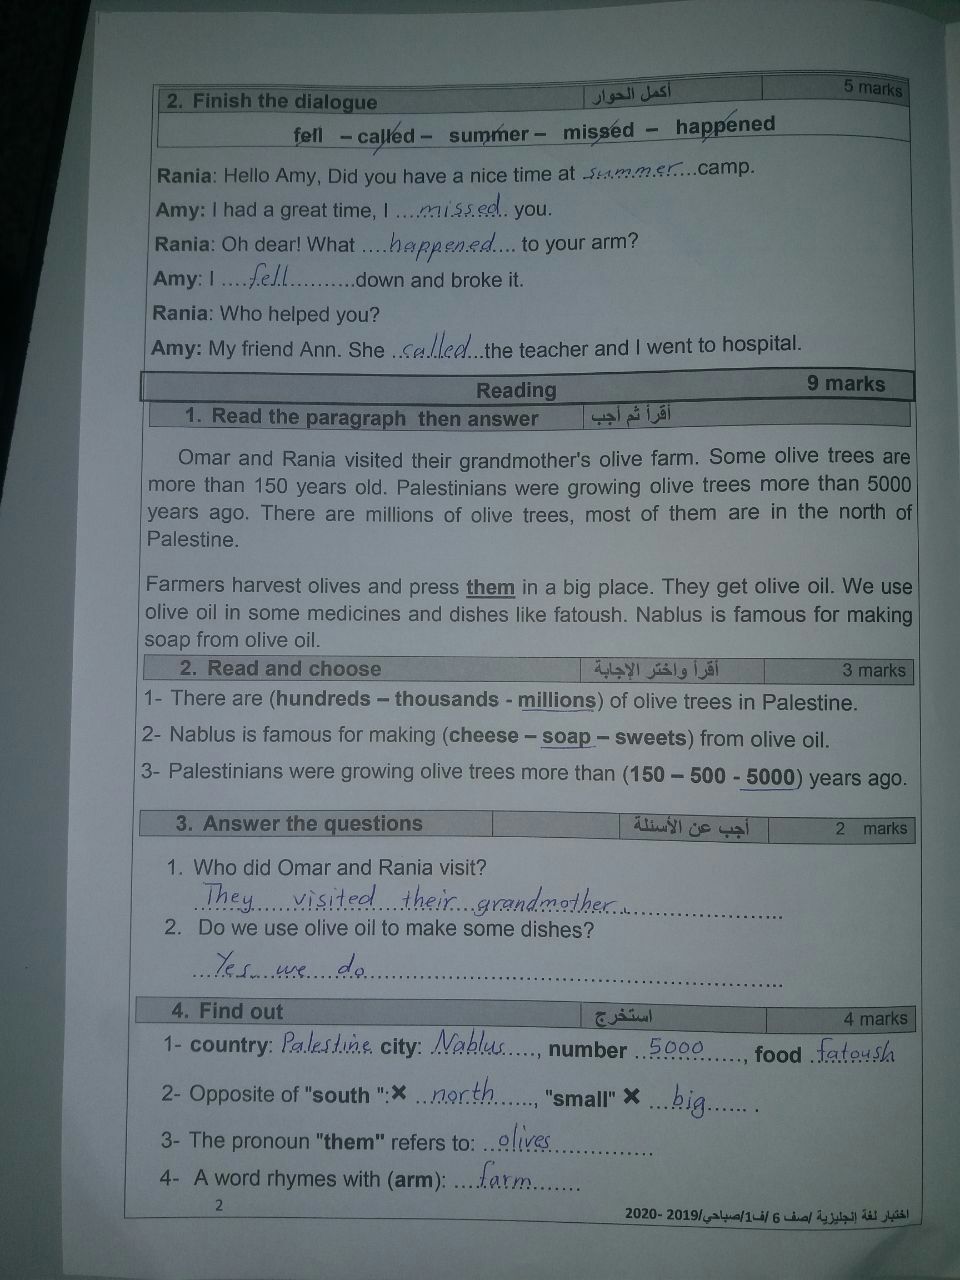 2. Finish the dialogue أكمل الحوار 5 marks
fell – called – summer – missed – happened
Rania: Hello Amy, Did you have a nice time at summer camp.
Amy: I had a great time, I ....missed.. you.
Rania: Oh dear! What ....happened.... to your arm?
Amy: I ....fell..........down and broke it.
Rania: Who helped you?
Amy: My friend Ann. She ..called...the teacher and I went to hospital.
Reading 9 marks
1. Read the paragraph then answer أقرأ ثم أجب
Omar and Rania visited their grandmother's olive farm. Some olive trees are
more than 150 years old. Palestinians were growing olive trees more than 5000
years ago. There are millions of olive trees, most of them are in the north of
Palestine.
Farmers harvest olives and press them in a big place. They get olive oil. We use
olive oil in some medicines and dishes like fatoush. Nablus is famous for making
soap from olive oil.
2. Read and choose أقرأ واختر الإجابة 3 marks
1- There are (hundreds – thousands - millions) of olive trees in Palestine.
2- Nablus is famous for making (cheese – soap – sweets) from olive oil.
3- Palestinians were growing olive trees more than (150 – 500 - 5000) years ago.
3. Answer the questions أجب عن الأسئلة 2 marks
1. Who did Omar and Rania visit?
They visited their grandmother.
2. Do we use olive oil to make some dishes?
Yes we do
4. Find out استخرج 4 marks
1- country: Palestine city: Nablus....., number ..5000......, food .fatoush
2- Opposite of "south ":× ..north......, "small" × ...big...... .
3- The pronoun "them" refers to: ..olives...............
4- A word rhymes with (arm): ....farm.......
2
اختبار لغة إنجليزية /صف 6 /ف1/صباحي/2019- 2020